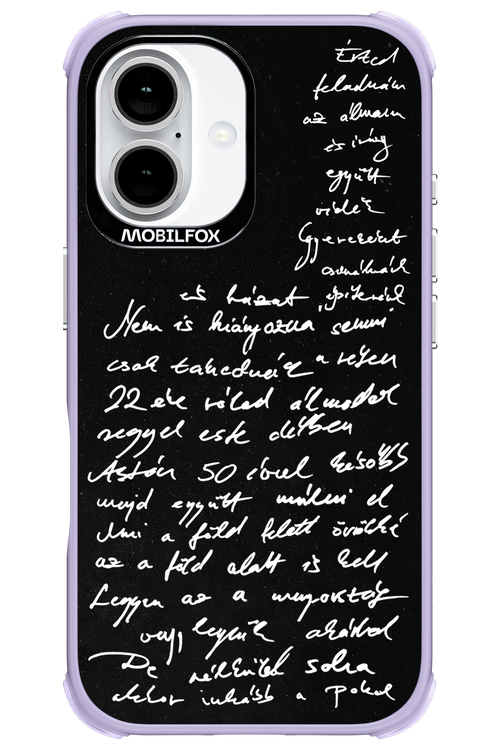 MOBILFOX
Érted
feladnám
az álmaim
és irány
együtt
vidék
Gyerekeket
csinálnánk
és házat építenénk
Nem is hiányozna semmi
csak takednék a rélen
22 éve rólad álmodok
reggel este délben
Aztán 50 évvel később
majd együtt múlni el
Ami a föld felett örökké
az a föld alatt is kell
Legyen az a mennyország
vagy legyünk akárhol
De nélküled soha
akkor inkább a pokol